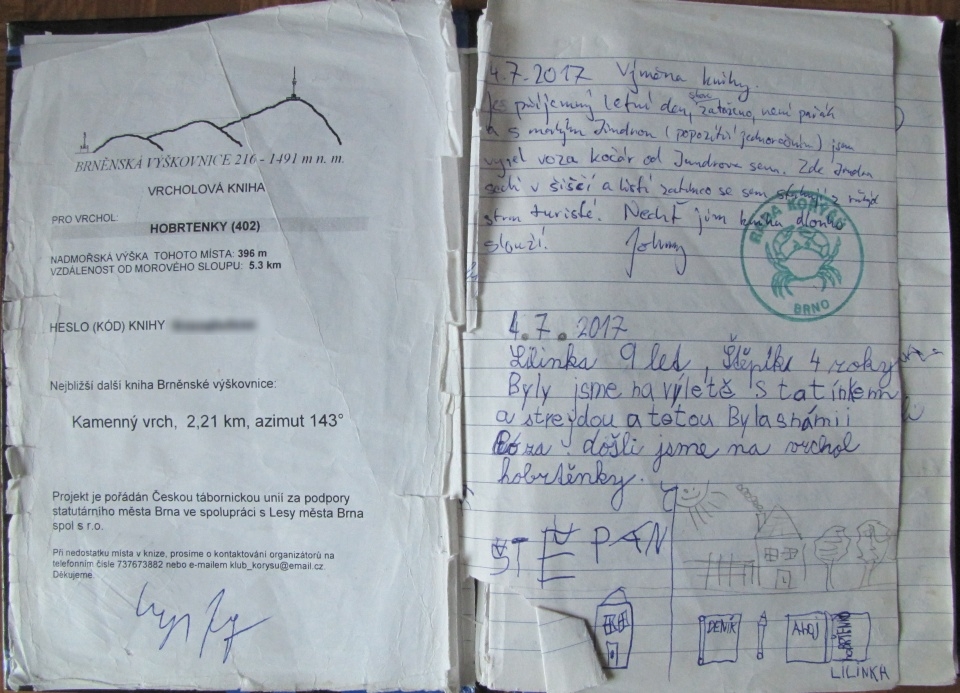 BRNĚNSKÁ VÝŠKOVNICE 216 - 1491 m n. m.
VRCHOLOVÁ KNIHA
PRO VRCHOL:
HOBRTENKY (402)
NADMOŘSKÁ VÝŠKA TOHOTO MÍSTA: 396 m
VZDÁLENOST OD MOROVÉHO SLOUPU: 5.3 km
HESLO (KÓD) KNIHY
Nejbližší další kniha Brněnské výškovnice:
Kamenný vrch, 2,21 km, azimut 143°
Projekt je pořádán Českou tábornickou unií za podpory
statutárního města Brna ve spolupráci s Lesy města Brna
spol s r.o.
Při nedostatku místa v knize, prosíme o kontaktování organizátorů na
telefonním čísle 737673882 nebo e-mailem klub_korysu@email.cz.
Děkujeme
4.7.2017 Výměna knihy.
příjemný letní den, zataženo, není pařák
a s malým Jindrou ( jsem
vyjel voza kočár od Jundrova sem. Zde Jindra
sedí v šiščí a listí zatímco se sem z
stran turisté. Nechť jim kniha dlouho
slouží. Johny
RADA KORYŠŮ
BRNO
4.7.2017
Lilinka 9 let, Štěpánka 4 roky
Byly jsme na výletě s tatínkem
a strejdou a tetou Byla snámii
Róza. došli jsme na vrchol
hobrtěnky.
ŠTĚPÁN
DENÍK
AHOJ
HOBRTĚNKY
LILINKA